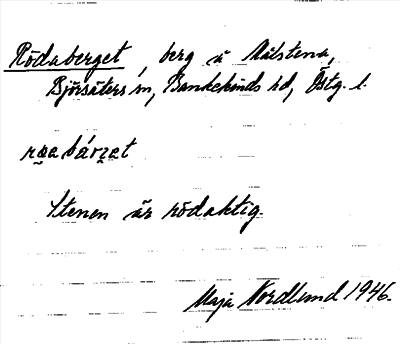 Rödaberget, berg å Målstena,
Björsäters sn, Bankekinds hd, Östg. l.
rɷabárɛt
Stenen är rödaktig.
Maja Nordlund 1946.